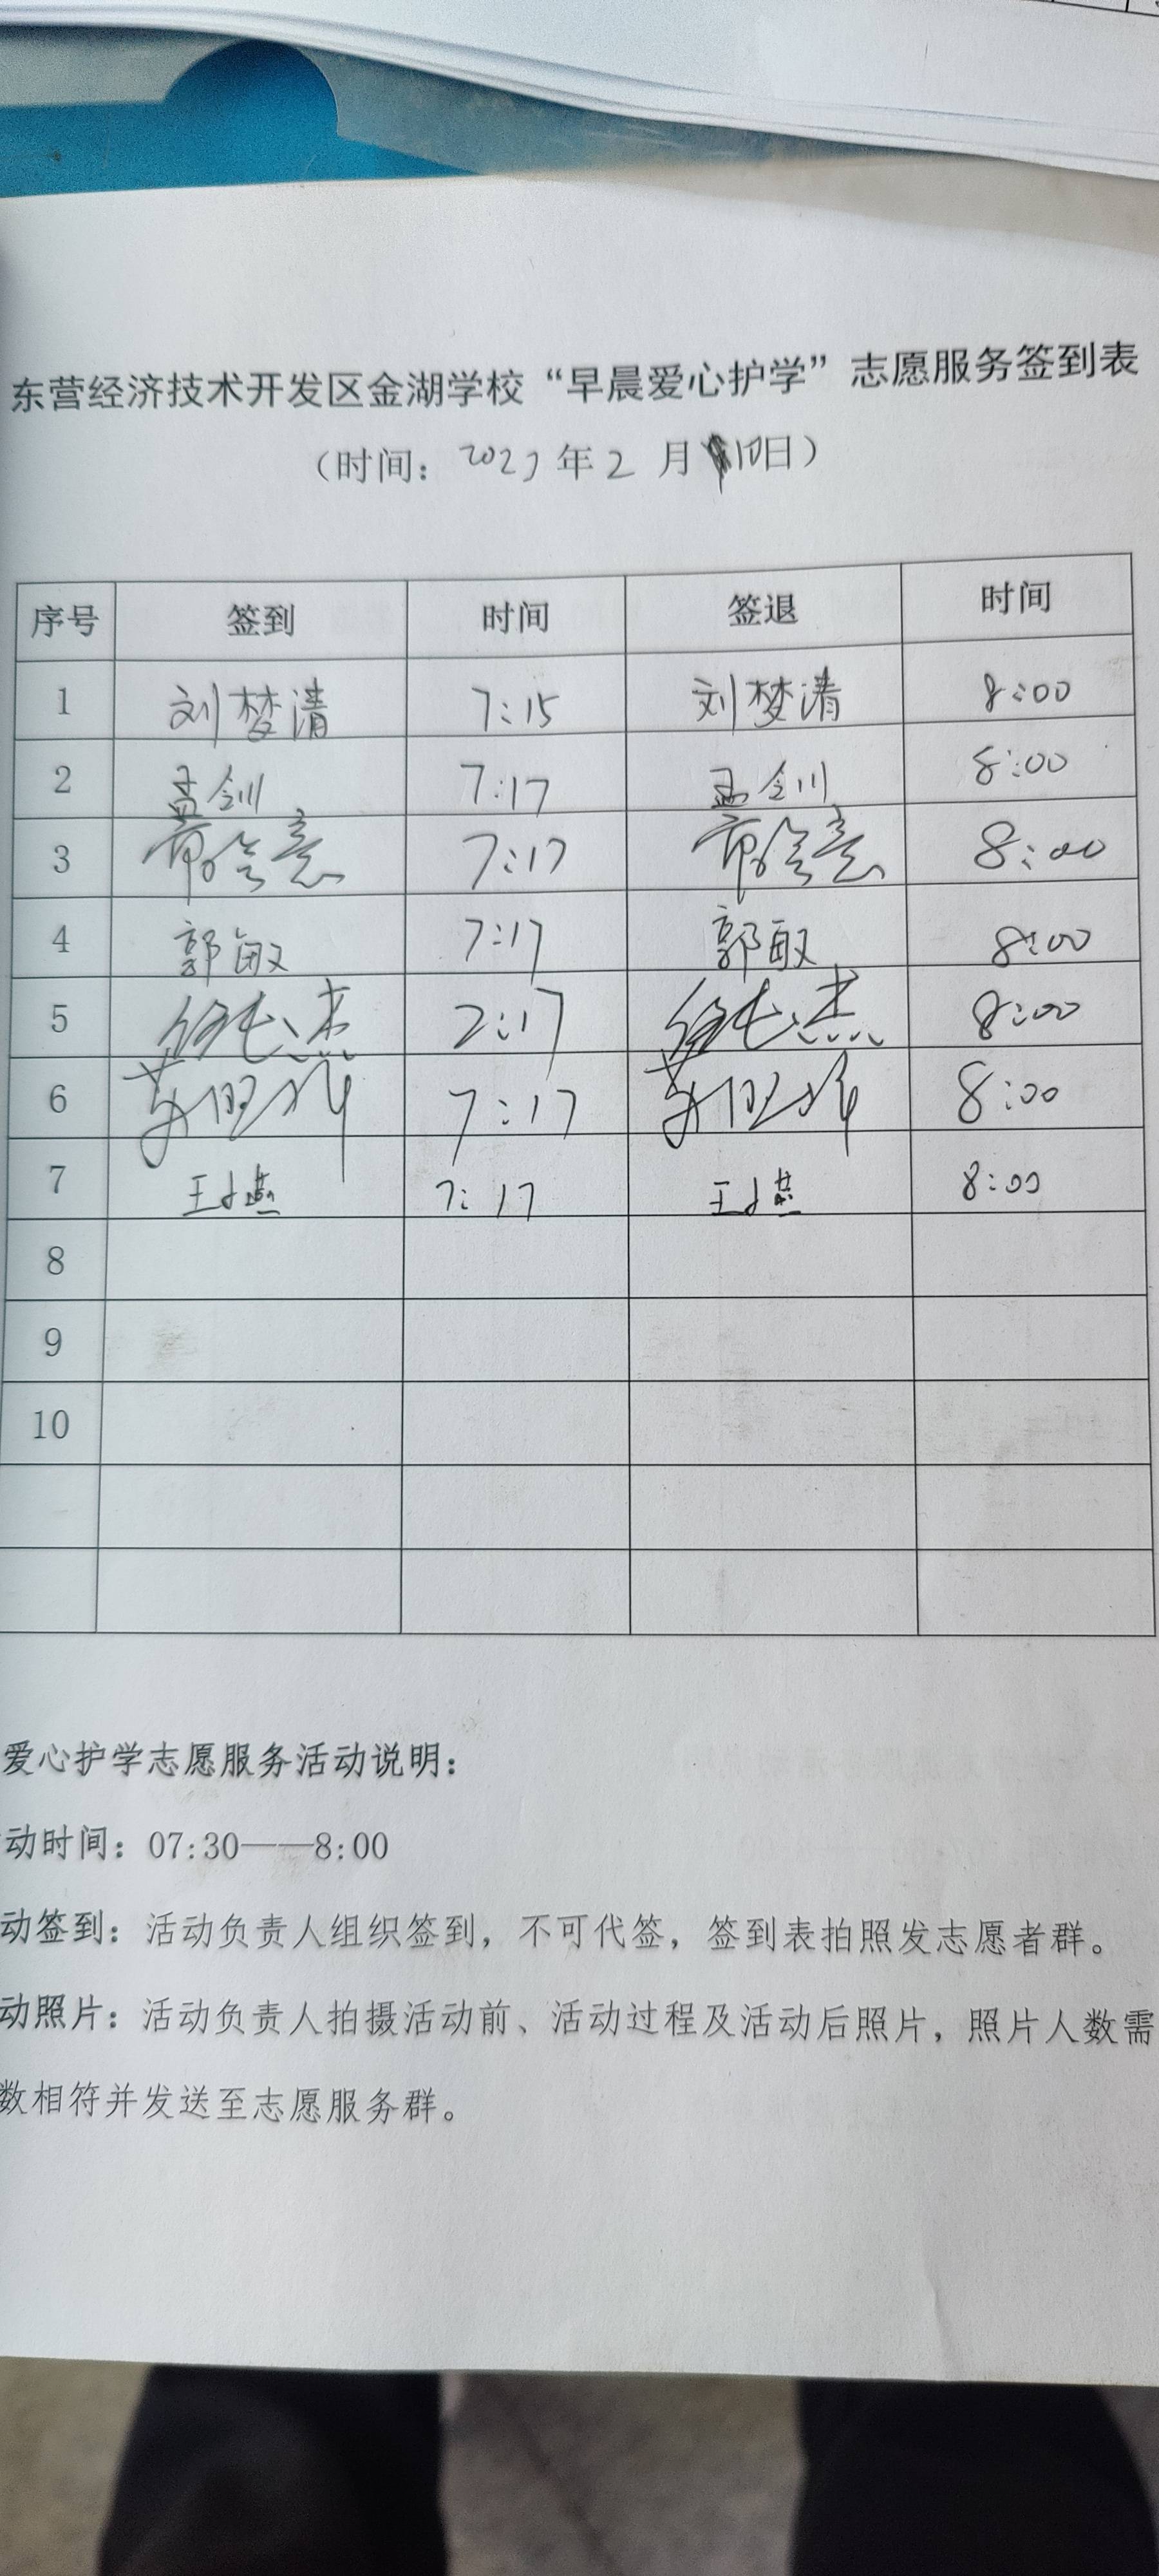 东营经济技术开发区金湖学校“早晨爱心护学”志愿服务签到表
（时间：2023年2月10日）
序号 签到 时间 签退 时间
1 刘梦清 7:15 刘梦清 8:00
2 孟剑 7:17 孟剑 8:00
3 7:17 8:00
4 郭敏 7:17 郭敏 8:00
5 2:17 8:00
6 7:17 8:00
7 王 7:17 王 8:00
8
9
10
爱心护学志愿服务活动说明：
动时间：07:30——8:00
动签到：活动负责人组织签到，不可代签，签到表拍照发志愿者群。
动照片：活动负责人拍摄活动前、活动过程及活动后照片，照片人数需
数相符并发送至志愿服务群。